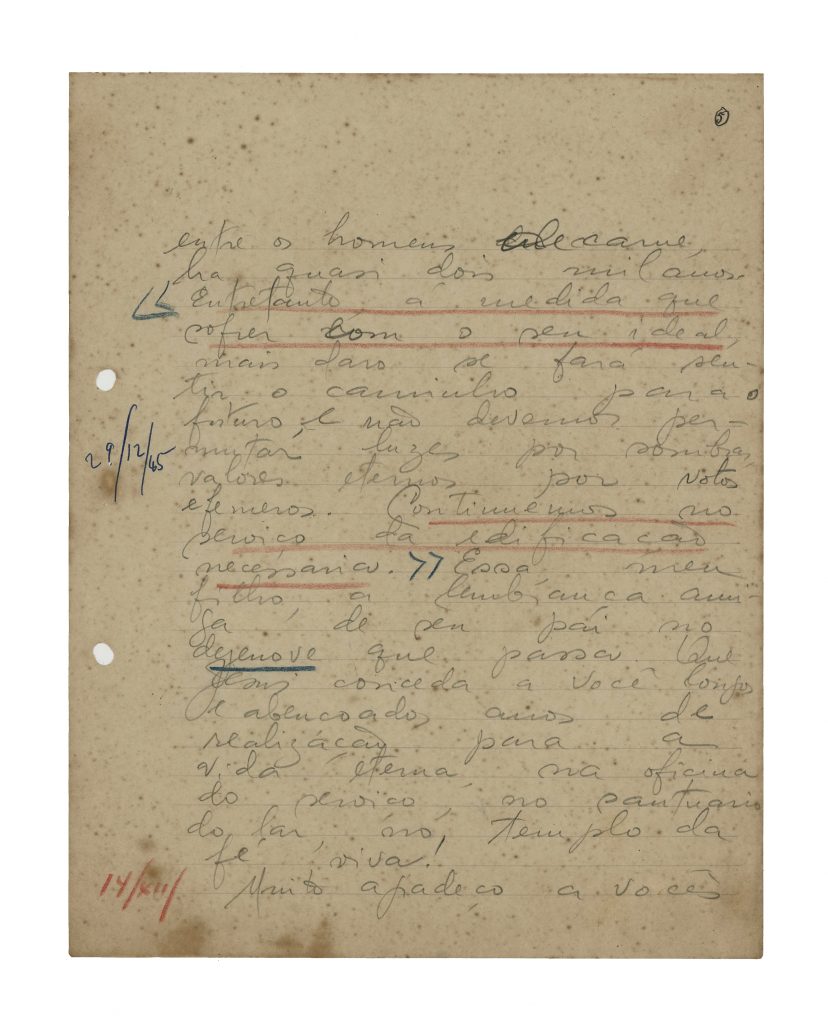 5
entre os homens encarne,
ha quasi dois mil anos.
« Entretanto, á medida que
sofrer com o seu ideal,
mais claro se fará sen-
tir o caminho para o
futuro, e não devemos per-
mutar luzes por sombras,
29/12/45
valores eternos por votos
efemeros. Continuemos no
serviço da edificação
necessaria. » Essa meu
filho, a lembrança ami-
ga de seu pai no
dezenove que passa. Que
Jesus conceda a você longos
e abençoados anos de
realização para a
vida eterna na oficina
do serviço, no santuario
do lar, no templo da
fé viva!
14/XII/
Muito agradeço a vocês